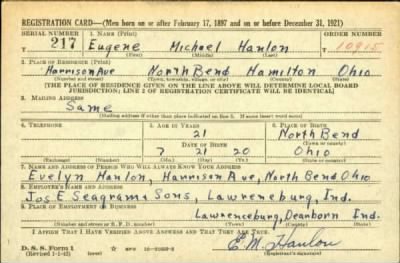 REGISTRATION CARD—(Men born on or after February 17, 1897 and on or before December 31, 1921)
SERIAL NUMBER 1. NAME (Print) ORDER NUMBER
217 Eugene Michael Hanlon 10915
(First) (Middle) (Last)
2. PLACE OF RESIDENCE (Print)
Harrison Ave North Bend Hamilton Ohio
(Number and street) (Town, township, village, or city) (County) (State)
[THE PLACE OF RESIDENCE GIVEN ON THE LINE ABOVE WILL DETERMINE LOCAL BOARD
JURISDICTION; LINE 2 OF REGISTRATION CERTIFICATE WILL BE IDENTICAL]
3. MAILING ADDRESS
Same
[Mailing address if other than place indicated on line 2. If same insert word same]
4. TELEPHONE 5. AGE IN YEARS 6. PLACE OF BIRTH
21 North Bend
DATE OF BIRTH (Town or county)
7 21 20 Ohio
(Exchange) (Number) (Mo.) (Day) (Yr.) (State or country)
7. NAME AND ADDRESS OF PERSON WHO WILL ALWAYS KNOW YOUR ADDRESS
Evelyn Hanlon, Harrison Ave, North Bend Ohio
8. EMPLOYER'S NAME AND ADDRESS
Jos E Seagram & Sons, Lawrenceburg, Ind.
9. PLACE OF EMPLOYMENT OR BUSINESS
Lawrenceburg, Dearborn Ind.
(Number and street or R. F. D. number) (Town) (County) (State)
I AFFIRM THAT I HAVE VERIFIED ABOVE ANSWERS AND THAT THEY ARE TRUE.
D. S. S. Form 1 E.M. Hanlon
(Revised 1-1-42) (Registrant's signature)